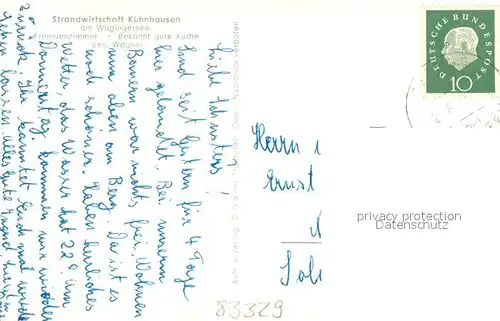 Strandwirtschaft Kühnhausen
am Wagingersee
Fremdenzimmer · Bekannt gute Küche
Bes. Wagner
Liebe
sind seit gestern für 4 Tage
hier gelandet. Bei unserm
Bauern war nichts frei. Wohnen
nun oben am Berg. Da ist es
noch schöner. Haben herrliches
Wetter, das Wasser hat 22°. Am
Donnerstag kommen wir wieder
zurück. Ihr könntet Euch mal wieder
sehen lassen. Alles Gute
DEUTSCHE BUNDESPOST
10
Herrn
Ernst
privacy protection
Datenschutz
83329